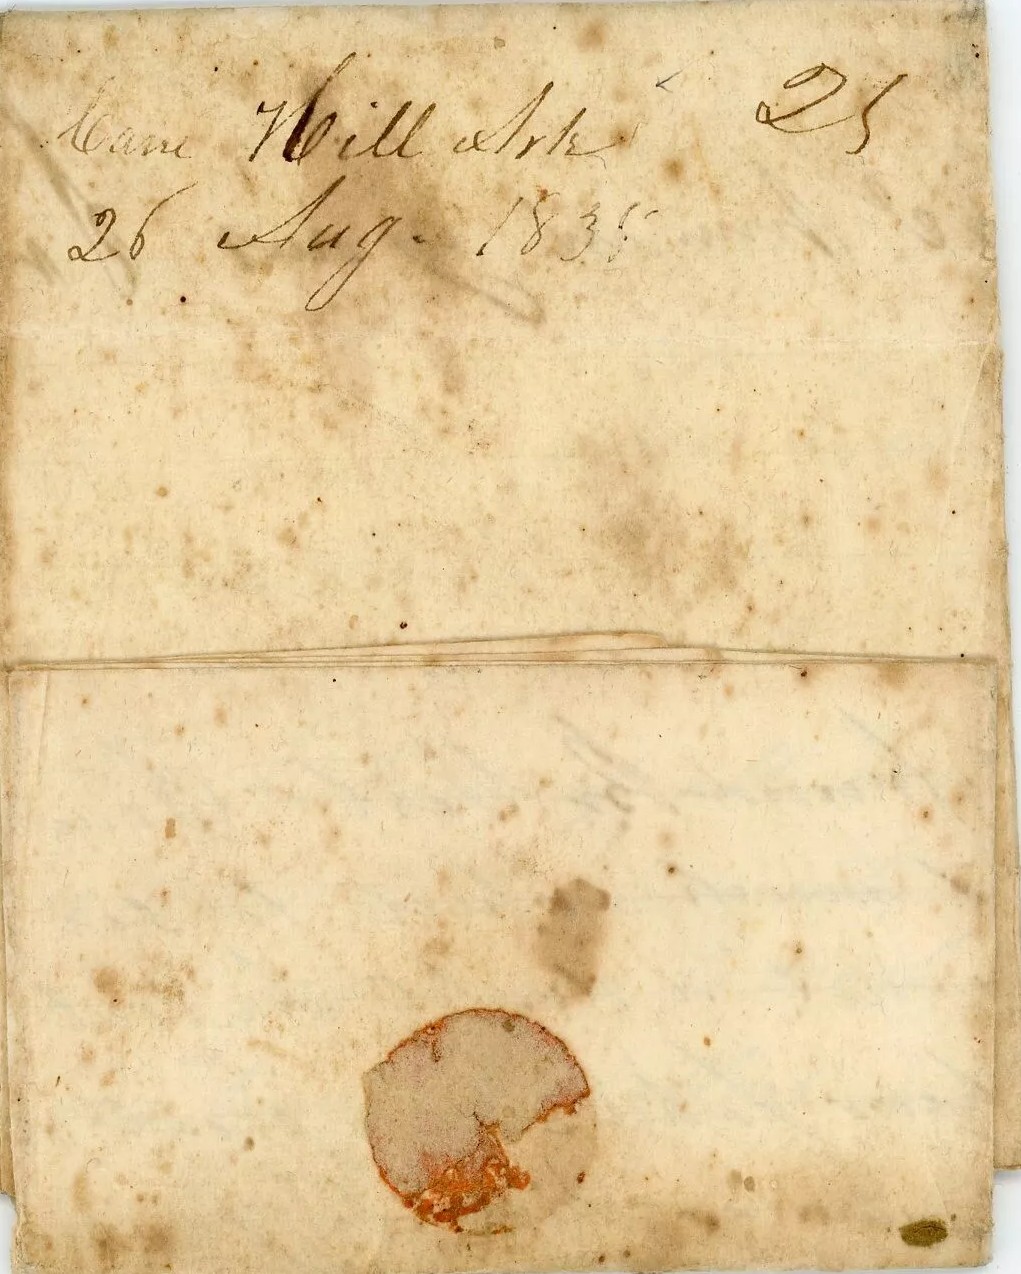 Cane Hill Ark 25
26 Aug. 1835